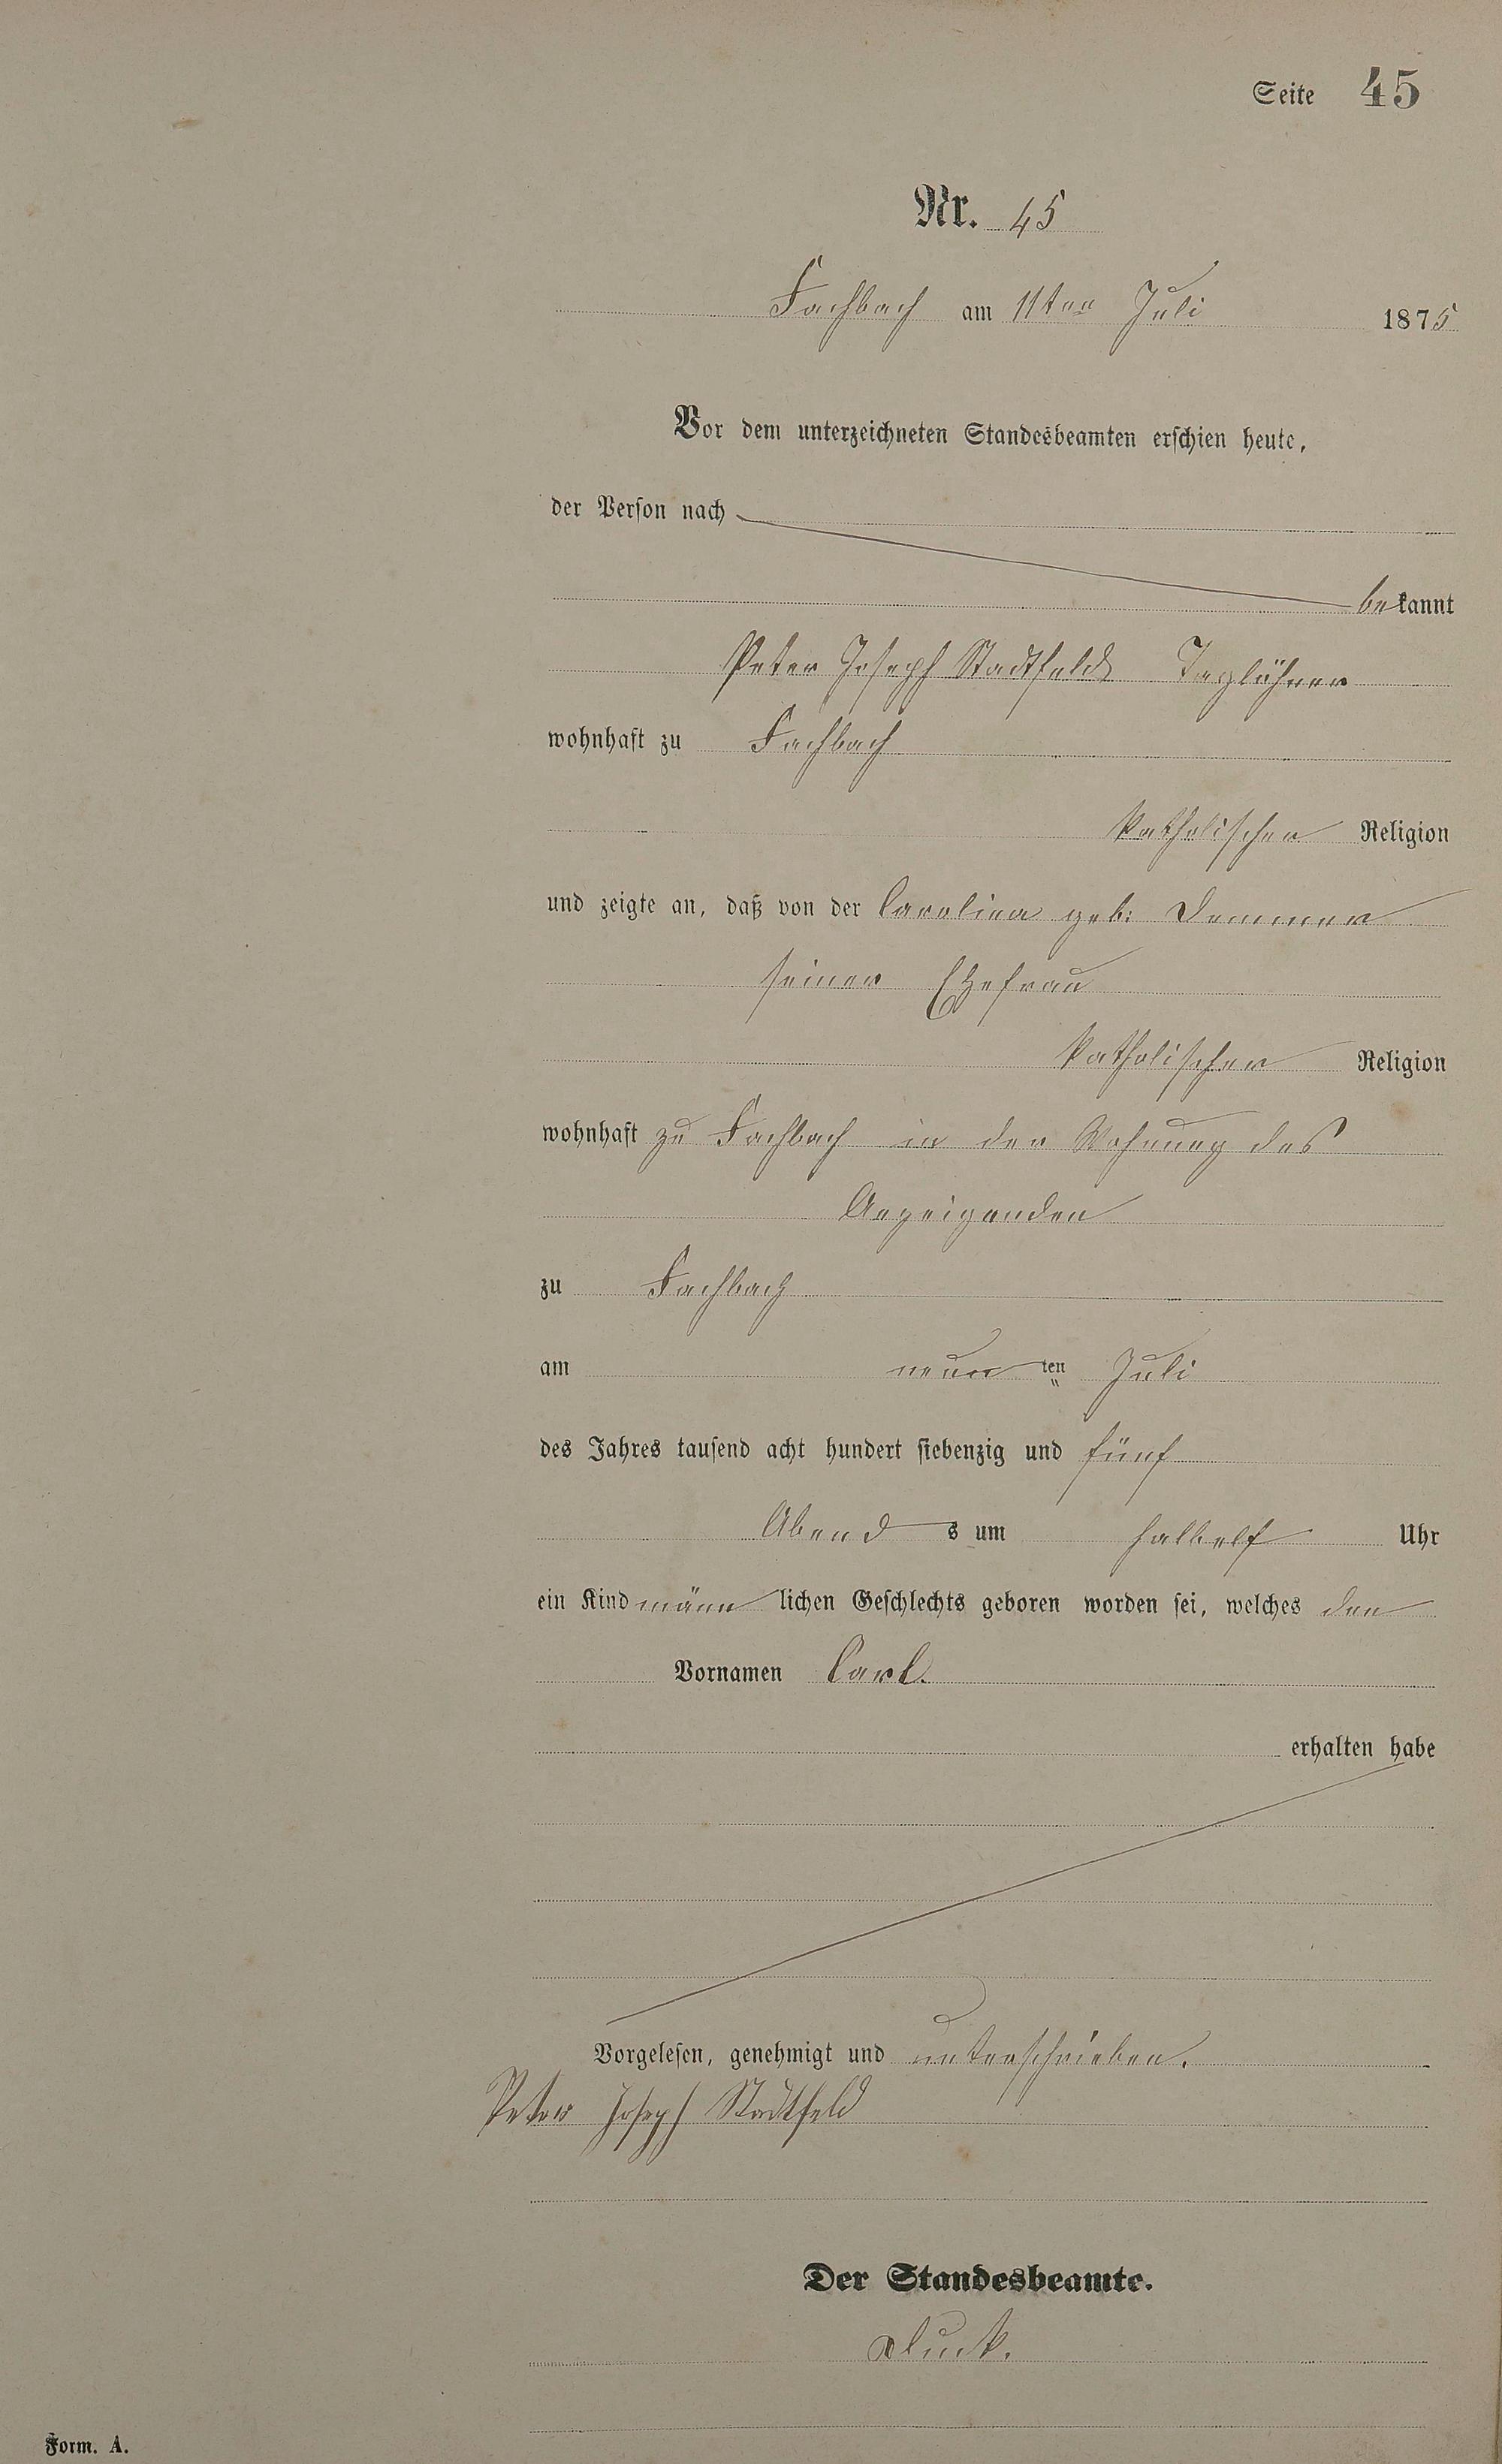 Seite 45
Nr. 45
Fachbach am 11ten Juli 1875
Vor dem unterzeichneten Standesbeamten erschien heute,
der Person nach
bekannt
Peter Joseph Stadtfeld Taglöhner
wohnhaft zu Fachbach
katholischer Religion
und zeigte an, daß von der Carolina geb: Demmer
seiner Ehefrau
katholischer Religion
wohnhaft zu Fachbach in der Wohnung des
Anzeigenden
zu Fachbach
am neunten Juli
des Jahres tausend acht hundert siebenzig und fünf
Abends um halbelf Uhr
ein Kind männlichen Geschlechts geboren worden sei, welches den
Vornamen Carl.
erhalten habe
Vorgelesen, genehmigt und unterschrieben.
Peter Joseph Stadtfeld
Der Standesbeamte.
Form. A.